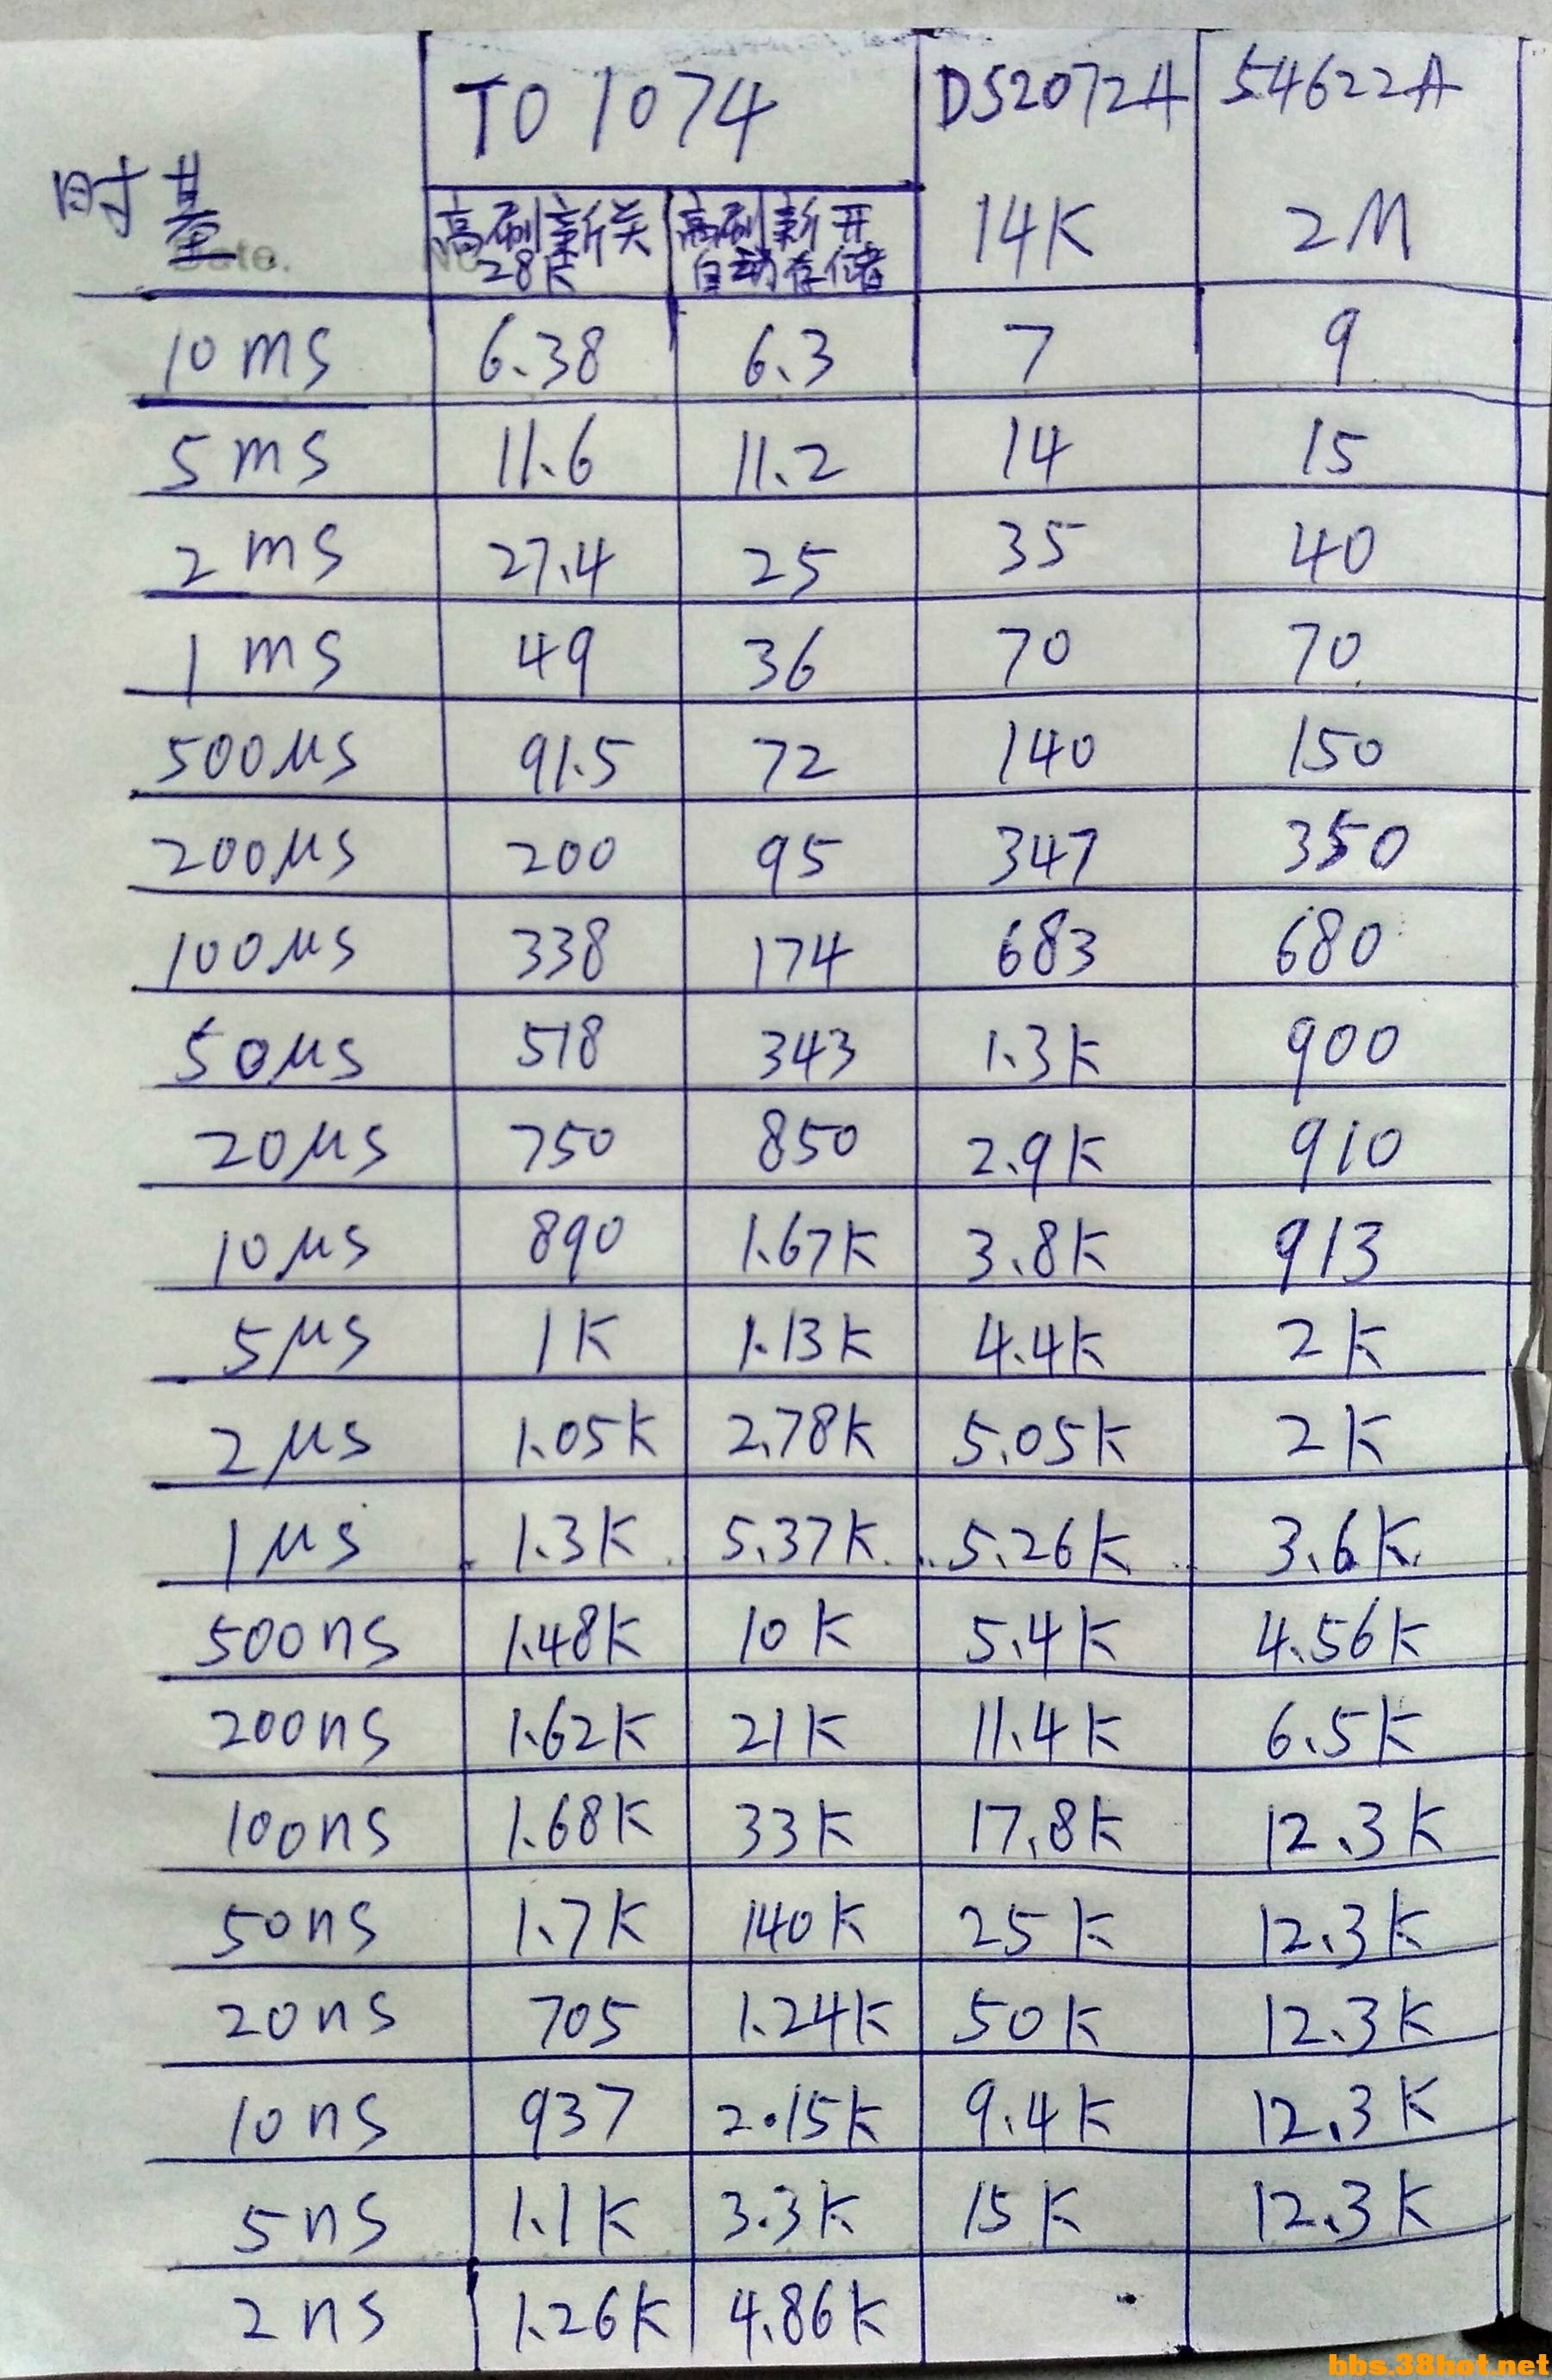 TO 1074 DS2072A 54622A
时基 高刷新关 高刷新开 14K 2M
28K 自动存储
10ms 6.38 6.3 7 9
5ms 11.6 11.2 14 15
2ms 27.4 25 35 40
1ms 49 36 70 70
500μs 91.5 72 140 150
200μs 200 95 347 350
100μs 338 174 683 680
50μs 518 343 1.3K 900
20μs 750 850 2.9K 910
10μs 890 1.67K 3.8K 913
5μs 1K 1.13K 4.4K 2K
2μs 1.05K 2.78K 5.05K 2K
1μs 1.3K 5.37K 5.26K 3.6K
500ns 1.48K 10K 5.4K 4.56K
200ns 1.62K 21K 11.4K 6.5K
100ns 1.68K 33K 17.8K 12.3K
50ns 1.7K 140K 25K 12.3K
20ns 705 1.24K 50K 12.3K
10ns 937 2.15K 9.4K 12.3K
5ns 1.1K 3.3K 15K 12.3K
2ns 1.26K 4.86K
bbs.38hot.net